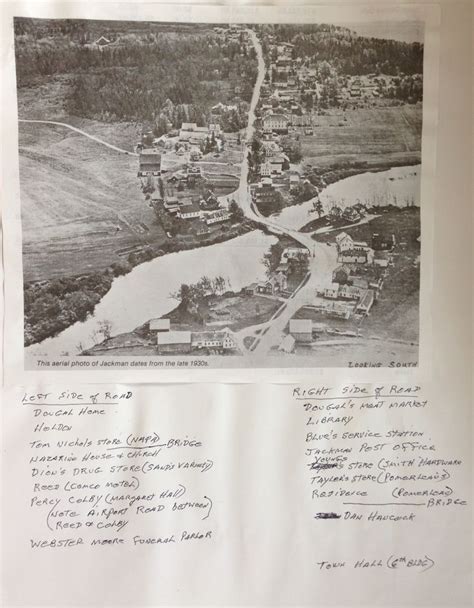 This aerial photo of Jackman dates from the late 1930s.
LOOKING SOUTH
LEFT SIDE OF ROAD
DOUGAL HOME
HOLDEN
TOM NICHOLS STORE (NAPA)
BRIDGE
NAZARINE HOUSE & CHURCH
DION'S DRUG STORE (SANDS VARIETY)
REED (COMCO MOTEL)
PERCY COLBY (MARGARET HALL)
(NOTE AIRPORT ROAD BETWEEN)
REED & COLBY
WEBSTER MOORE FUNERAL PARLOR
RIGHT SIDE OF ROAD
DOUGAL'S MEAT MARKET
LIBRARY
BLUE'S SERVICE STATION
JACKMAN POST OFFICE
YOUNGS
STORE (SMITH HARDWARE
TAYLER'S STORE (POMERLEAU'S)
RESIDENCE (POMERLEAU)
BRIDGE
DAN HANCOCK
TOWN HALL (6TH BLDG)